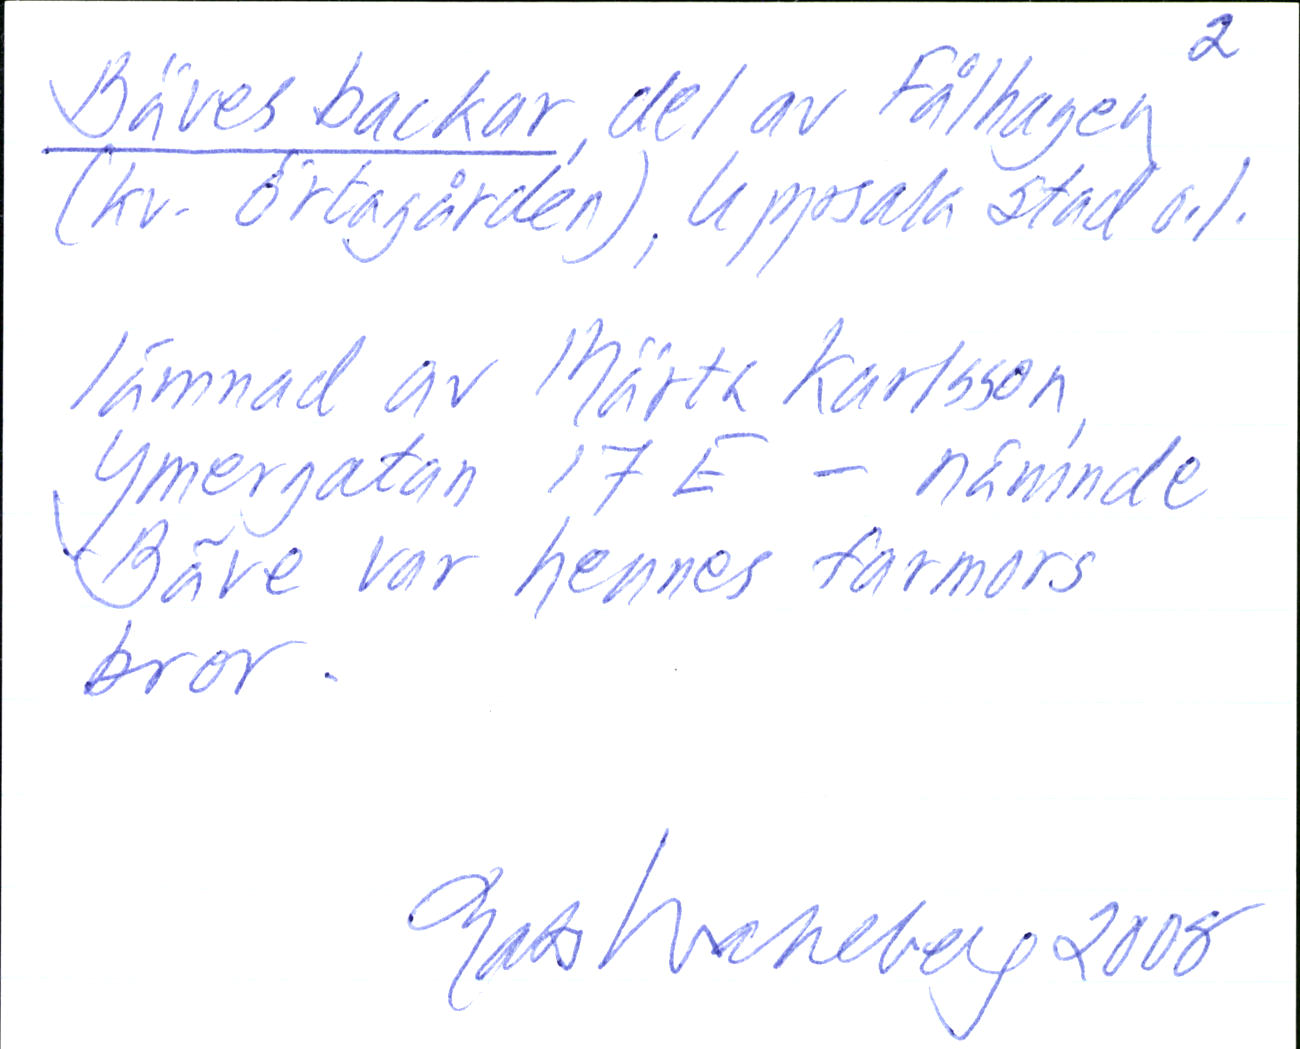 2
Bäves backar, del av Fålhagen
(kv. Örtagården), Uppsala stad o.l.
lämnad av Märta Karlsson,
Ymergatan 17 E – nämnde
Bäve var hennes farmors
bror.
Mats Wahlberg 2008